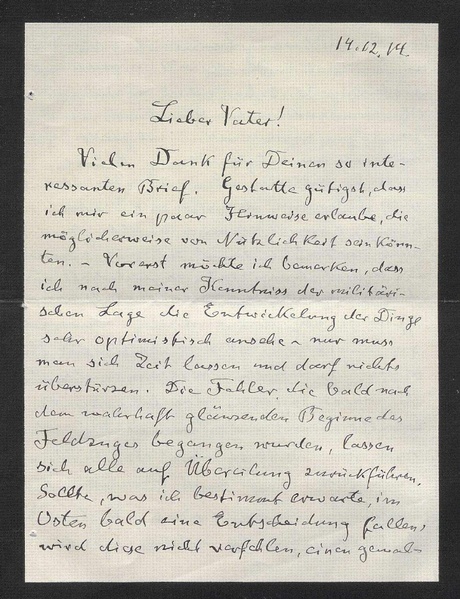 14.12.14
Lieber Vater!
Vielen Dank für Deinen so inte-
ressanten Brief. Gestatte gütigst, dass
ich mir ein paar Hinweise erlaube, die
möglicherweise von Nützlichkeit sein könn-
ten. – Vorerst möchte ich bemerken, dass
ich nach meiner Kenntniss der militäri-
schen Lage die Entwickelung der Dinge
sehr optimistisch ansehe – nur muss
man sich Zeit lassen und darf nichts
überstürzen. Die Fehler, die bald nach
dem wahrhaft glänzenden Beginne des
Feldzuges begangen wurden, lassen
sich alle auf Übereilung zurückführen.
Sollte, was ich bestimmt erwarte, im
Osten bald eine Entscheidung fallen,
wird diese nicht verfehlen, einen gewal-